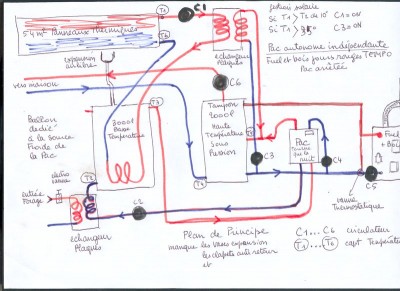 5,4 m² Panneaux Thermiques
T1
C1
T2
echangeur
Plaques
gestion solaire
Si T1 > T2 de 10° C1 = ON
Si T1 > 35° C3 = ON
Pac autonome indépendante
Fuel et bois jours rouges TEMPO
Pac arrêtée
expansion
vers maison
C6
T3
Ballon
dédié
à la source
froide de
la Pac
3000l
Basse
Température
T5
Tampon
3000l
haute
Température
Sous
Pression
Pac
la nuit
Fuel
C3
C4
C5
vanne
Thermostatique
electro
vanne
entrée
Forage
C2
echangeur
Plaques
Plan de Principe
manque les vases expansion
les clapets anti retour
et
C1 ... C6 circulateur
T1 ... T6 capt Température